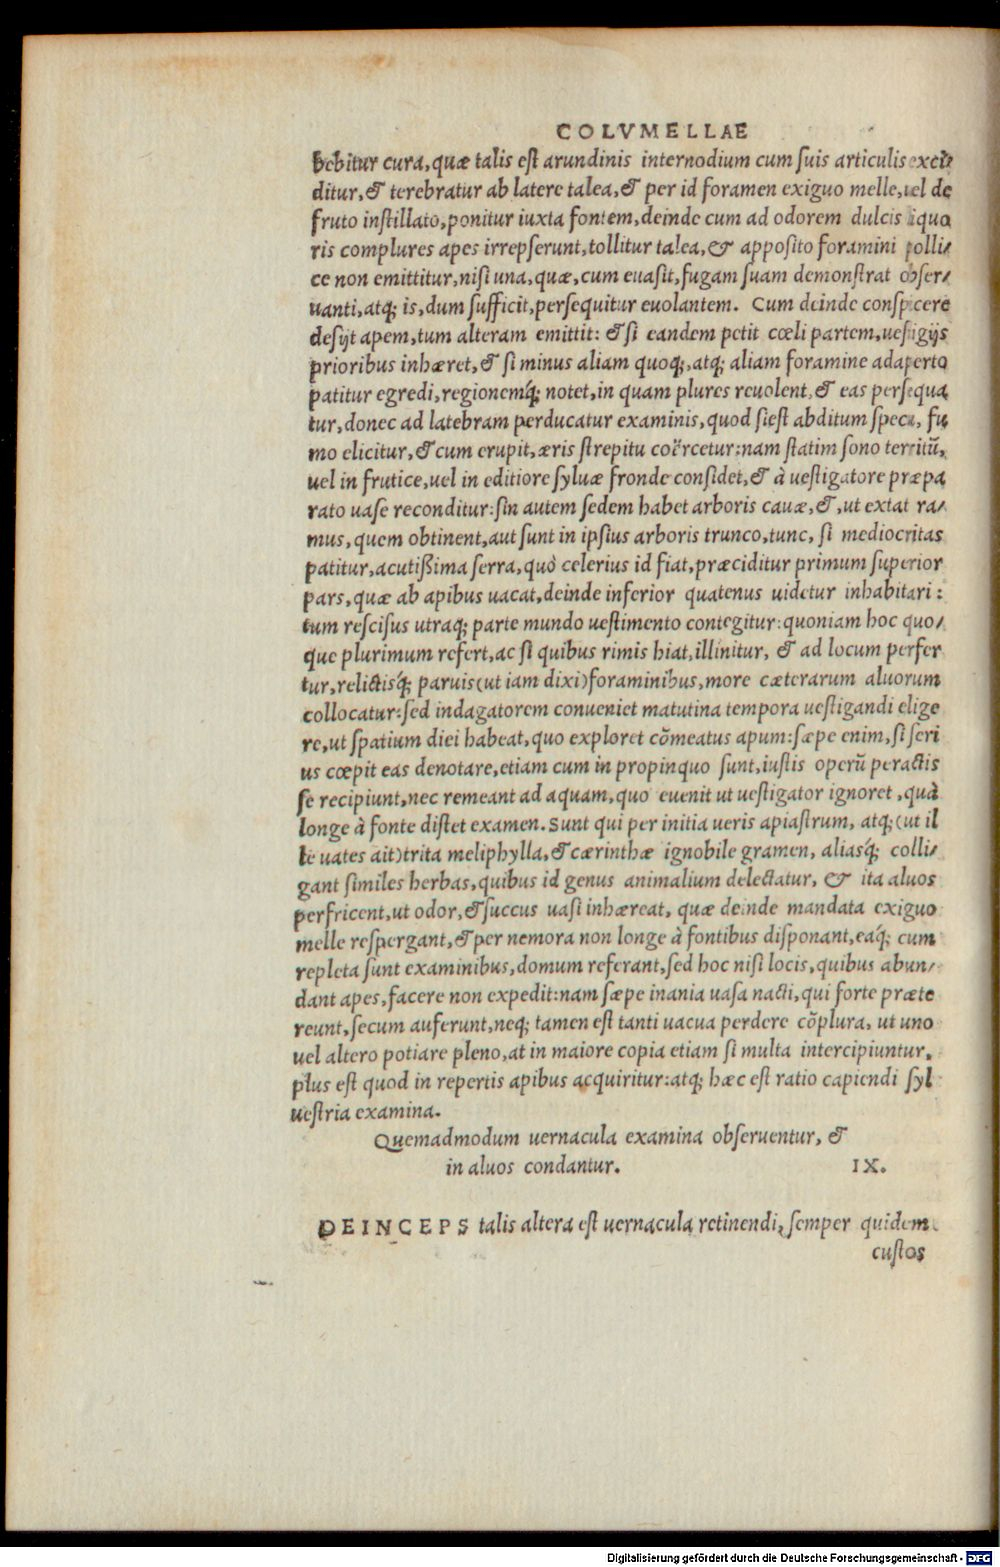 COLVMELLAE
bebitur cura, quæ talis est arundinis internodium cum suis articulis exci/
ditur, & terebratur ab latere talea, & per id foramen exiguo melle, uel de
fruto instillato, ponitur iuxta fontem, deinde cum ad odorem dulcis liquo
ris complures apes irrepserunt, tollitur talea, & apposito foramini polli/
ce non emittitur, nisi una, quæ, cum euasit, fugam suam demonstrat obser/
uanti, atq; is, dum sufficit, persequitur euolantem. Cum deinde conspicere
desijt apem, tum alteram emittit: & si eandem petit cœli partem, uestigijs
prioribus inhæret, & si minus aliam quoq;, atq; aliam foramine adaperto
patitur egredi, regionemq́; notet, in quam plures reuolent, & eas persequa
tur, donec ad latebram perducatur examinis, quod siest abditum specu, fu
mo elicitur, & cum erupit, æris strepitu coërcetur: nam statim sono territũ,
uel in frutice, uel in editiore syluæ fronde considet, & à uestigatore præpa
rato uase reconditur: sin autem sedem habet arboris cauæ, &, ut extat ra/
mus, quem obtinent, aut sunt in ipsius arboris trunco, tunc, si mediocritas
patitur, acutißima serra, quò celerius id fiat, præciditur primum superior
pars, quæ ab apibus uacat, deinde inferior quatenus uidetur inhabitari:
tum rescisus utraq; parte mundo uestimento contegitur: quoniam hoc quo/
que plurimum refert, ac si quibus rimis hiat, illinitur, & ad locum perfer
tur, relictisq́; paruis (ut iam dixi) foraminibus, more cæterarum aluorum
collocatur: sed indagatorem conueniet matutina tempora uestigandi elige
re, ut spatium diei habeat, quo exploret cõmeatus apum: sæpe enim, si seri
us cœpit eas denotare, etiam cum in propinquo sunt, iustis operũ peractis
se recipiunt, nec remeant ad aquam, quo euenit ut uestigator ignoret, quà
longe à fonte distet examen. Sunt qui per initia ueris apiastrum, atq; (ut il
le uates ait) trita meliphylla, & cærinthæ ignobile gramen, aliasq́; colli/
gant similes herbas, quibus id genus animalium delectatur, & ita aluos
perfricent, ut odor, & succus uasi inhæreat, quæ deinde mandata exiguo
melle respergant, & per nemora non longe à fontibus disponant, eaq́; cum
repleta sunt examinibus, domum referant, sed hoc nisi locis, quibus abun/
dant apes, facere non expedit: nam sæpe inania uasa nacti, qui forte præte
reunt, secum auferunt, neq; tamen est tanti uacua perdere cõplura, ut uno
uel altero potiare pleno, at in maiore copia etiam si multa intercipiuntur,
plus est quod in repertis apibus acquiritur: atq; hæc est ratio capiendi syl
uestria examina.
Quemadmodum uernacula examina obseruentur, &
in aluos condantur. IX.
DEINCEPS talis altera est uernacula retinendi, semper quidem
custos
Digitalisierung gefördert durch die Deutsche Forschungsgemeinschaft - DFG